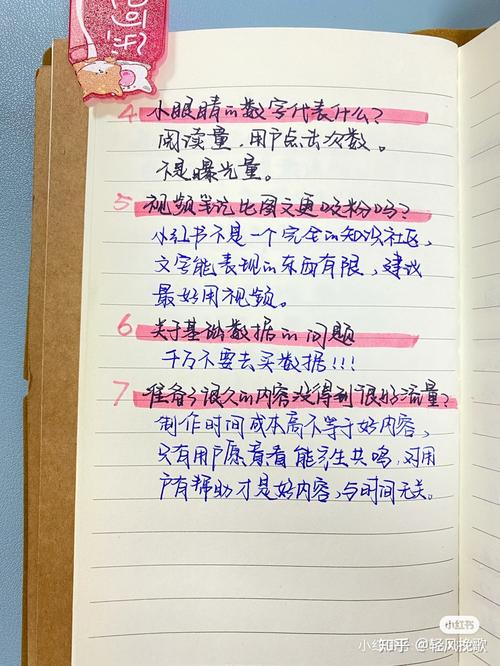 4 小眼睛的数字代表什么?
阅读量,用户点击次数。
不是曝光量。
5 视频笔记比图文更吸粉吗?
小红书不是一个完全的知识社区,
文字能表现的东西有限,建议
最好用视频。
6 关于基础数据的问题
千万不要去买数据!!!
7 准备了很久的内容没得到很好流量?
制作时间成本高不等于好内容,
只有用户愿意看能产生共鸣,对用
户有帮助才是好内容,与时间无关。
小红书
知乎 @轻风挽歌